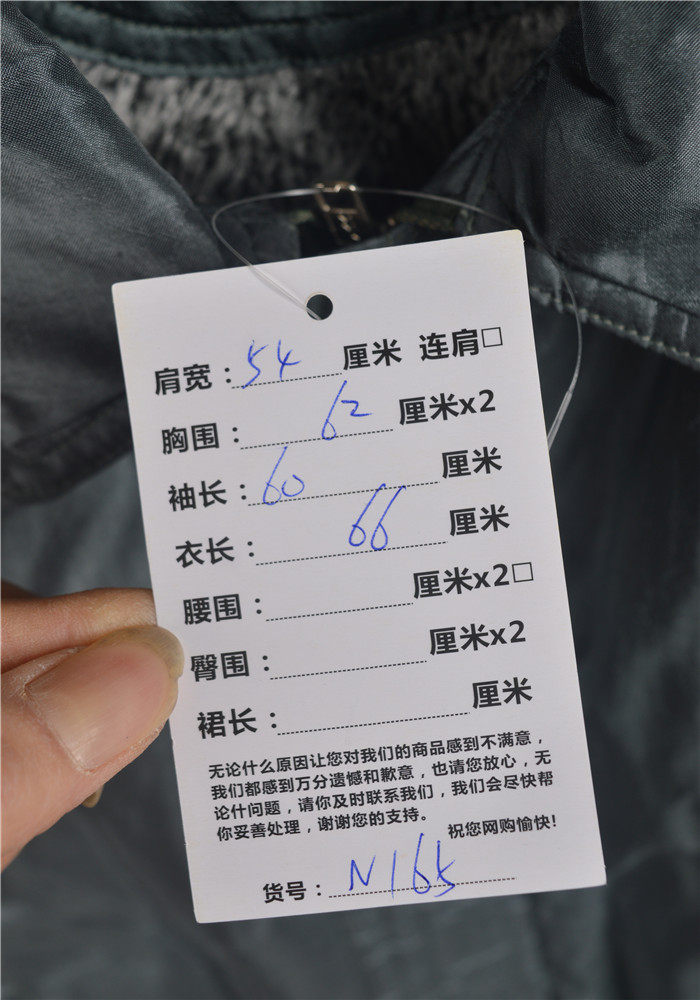 肩宽：54 厘米 连肩□
胸围：62 厘米x2
袖长：60 厘米
衣长：66 厘米
腰围： 厘米x2□
臀围： 厘米x2
裙长： 厘米
无论什么原因让您对我们的商品感到不满意，
我们都感到万分遗憾和歉意，也请您放心，无
论什问题，请你及时联系我们，我们会尽快帮
你妥善处理，谢谢您的支持。
祝您网购愉快!
货号：N165